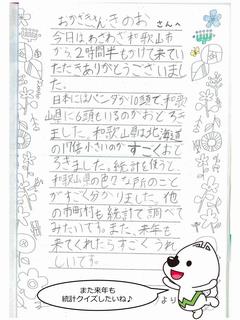 おかざきさん きのお さんへ
今日はわざわざ和歌山市
から2時間半もかけて来てい
ただきありがとうございまし
た。
日本にはパンダが10頭で、和歌
山県に6頭いるのがおどろ
きました。和歌山県は北海道
の 小さいのがすごくおど
ろきました。統計を使うと、
和歌山県の色々な所のこと
がすごく分かりました。他
の市町村も統計で調べて
みたいです。また、来年も
来てくれたらすごくうれ
しいです。
より
また来年も
統計クイズしたいね♪